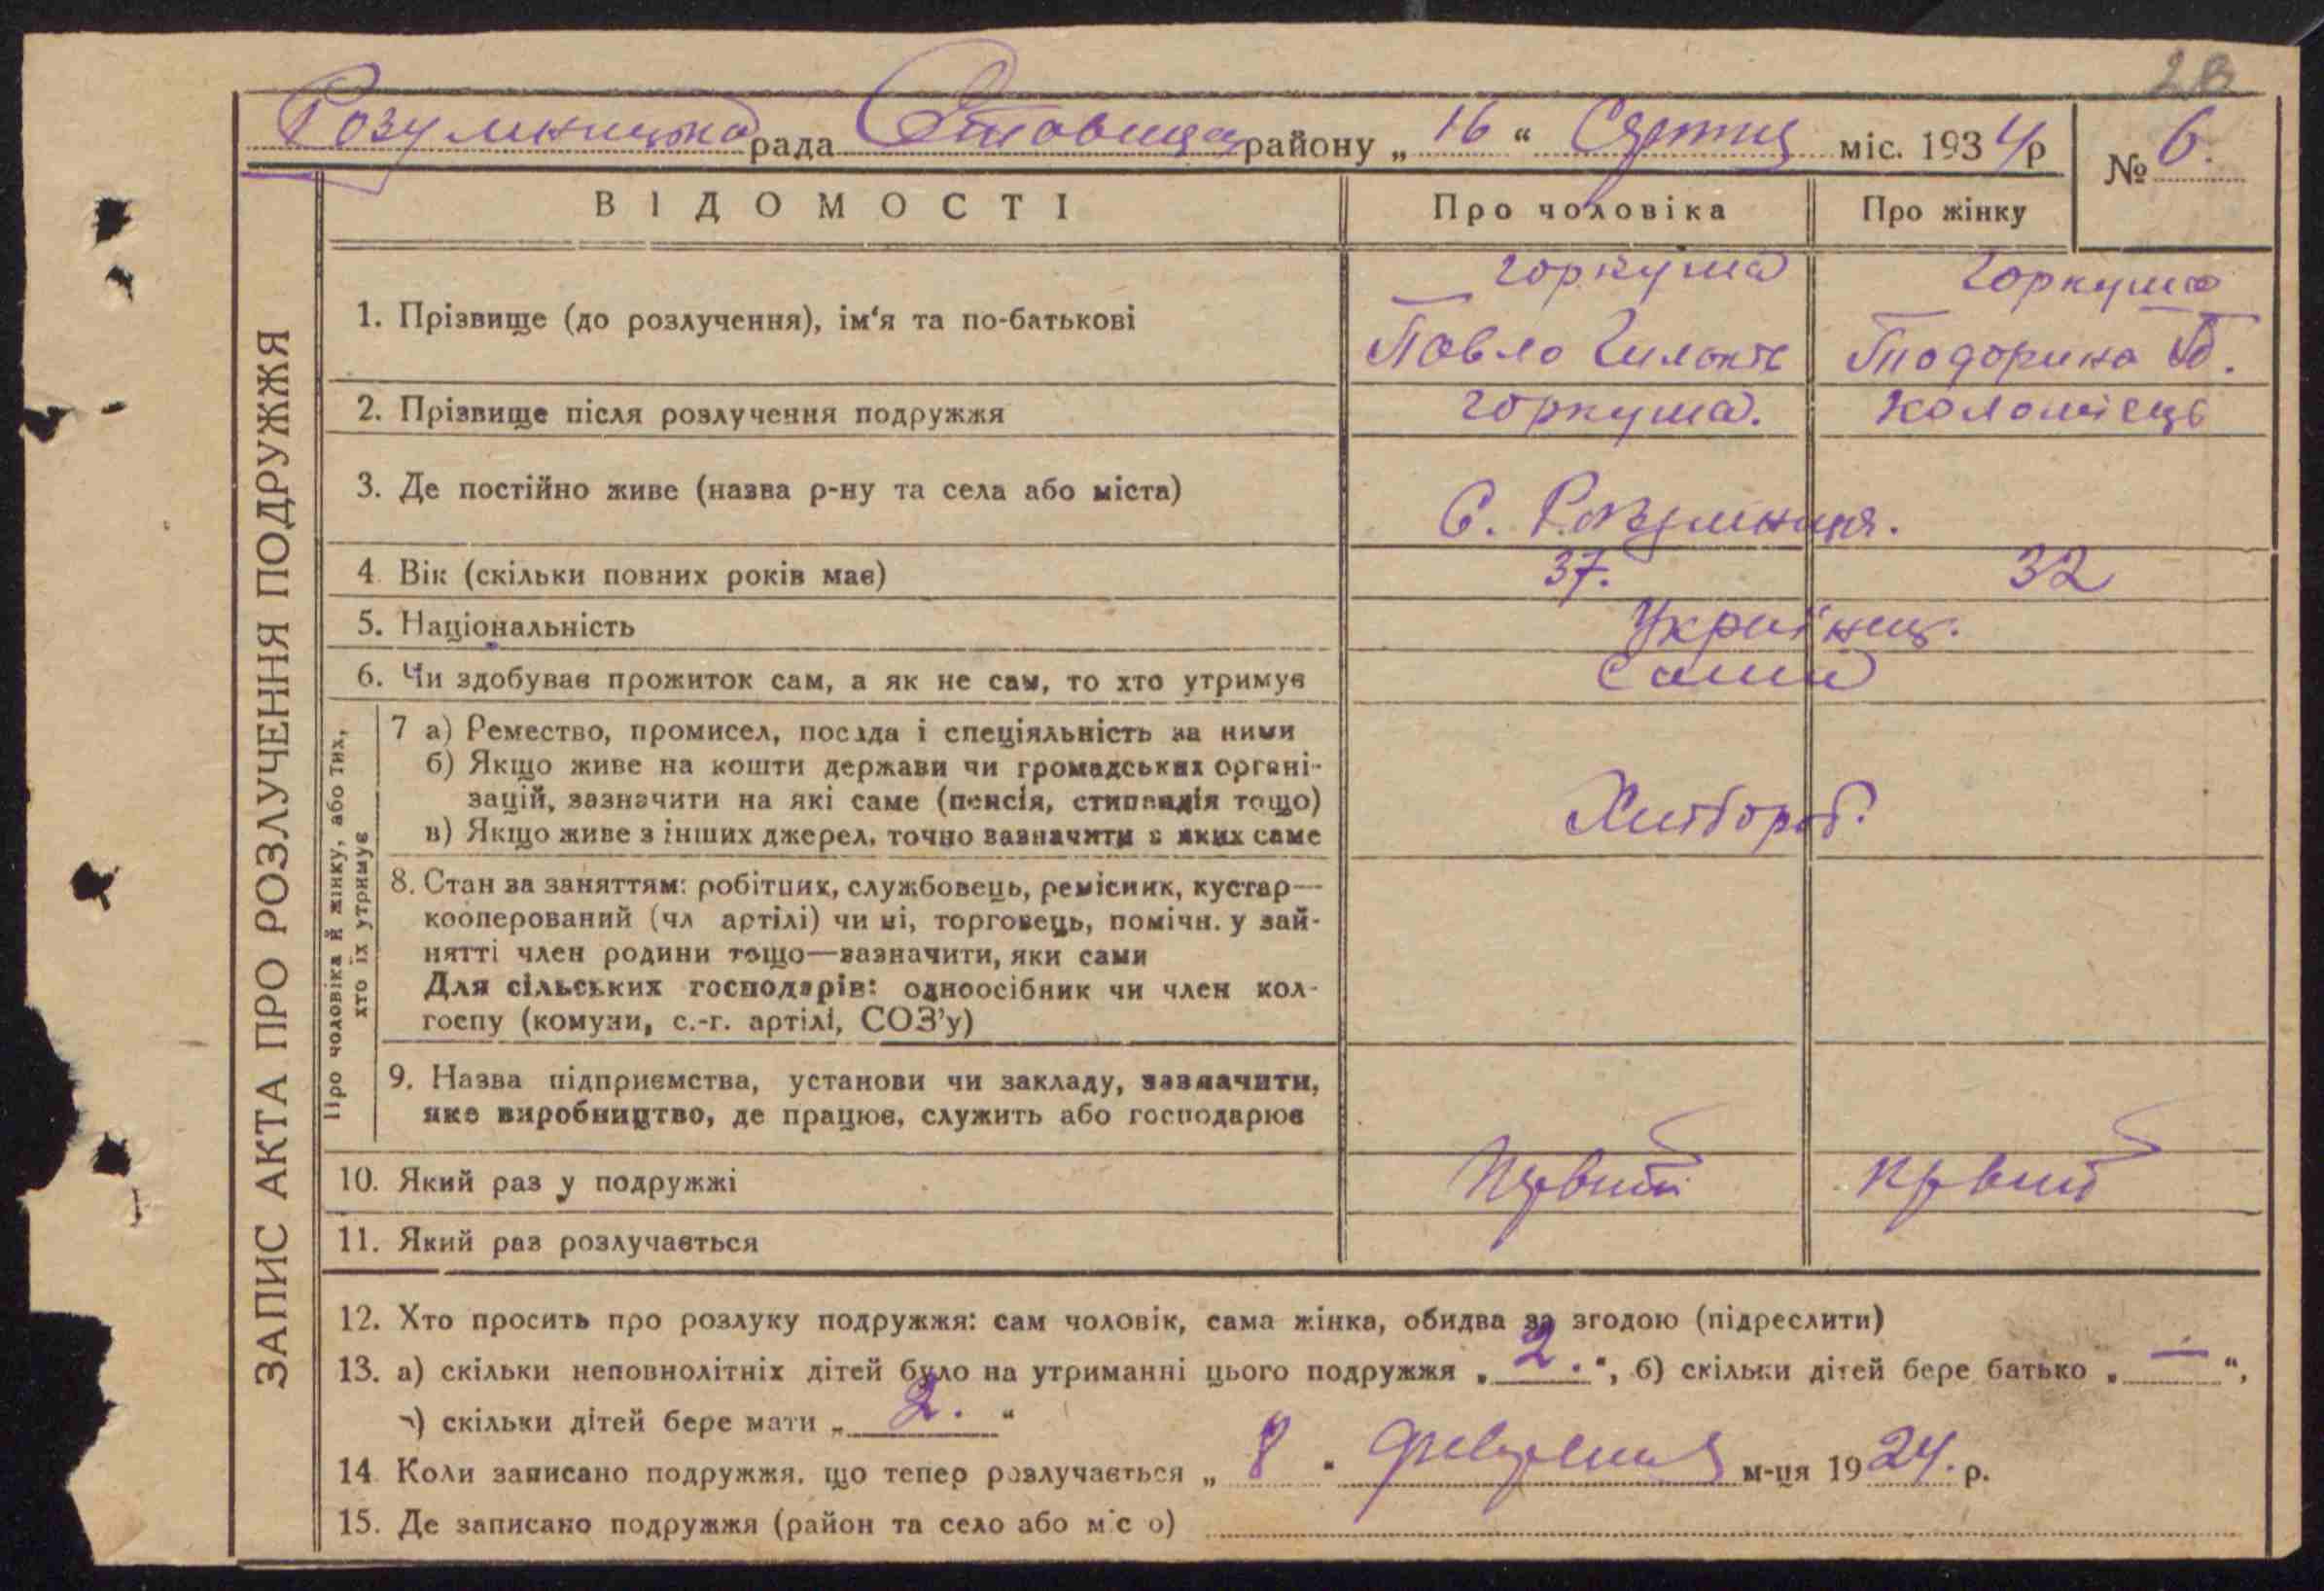 28
Розумницька рада Ставища району „ 16 “ Сертня міс. 1934 р
№ 6.
ВІДОМОСТІ
Про чоловіка
Про жінку
ЗАПИС АКТА ПРО РОЗЛУЧЕННЯ ПОДРУЖЖЯ
1. Прізвище (до розлучення), ім'я та по-батькові
горкуша
Павло
горкуша
Тодорина
2. Прізвище після розлучення подружжя
горкуша.
Коломієць
3. Де постійно живе (назва р-ну та села або міста)
С. Розумниця.
4. Вік (скільки повних років має)
37.
32
5. Національність
Українец.
6. Чи здобуває прожиток сам, а як не сам, то хто утримує
Сами
Про чоловіка й жінку, або тих,
хто їх утримує
7 а) Ремество, промисел, посада і спеціяльність за ними
б) Якщо живе на кошти держави чи громадських органі-
зацій, зазначити на які саме (пенсія, стипендія тощо)
в) Якщо живе з інших джерел, точно зазначити з яких саме
Хлібороб.
8. Стан за заняттям: робітник, службовець, ремісник, кустар—
кооперований (чл артілі) чи ні, торговець, помічн. у зай-
нятті член родини тощо—зазначити, яки сами
Для сільських господарів: одноосібник чи член кол-
госпу (комуни, с.-г. артілі, СОЗ'у)
9. Назва підприємства, установи чи закладу, зазначити,
яке виробництво, де працює, служить або господарює
10. Який раз у подружжі
Первий
Первий
11. Який раз розлучається
12. Хто просить про розлуку подружжя: сам чоловік, сама жінка, обидва за згодою (підреслити)
13. а) скільки неповнолітніх дітей було на утриманні цього подружжя „ 2. “, б) скільки дітей бере батько „ — “,
в) скільки дітей бере мати „ 2. “
14 Коли записано подружжя, що тепер розлучається „ 8 “ м-ця 1924. р.
15. Де записано подружжя (район та село або місто)